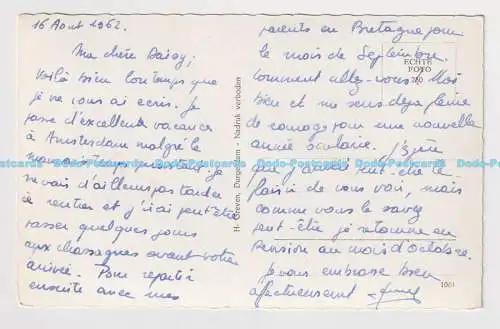 16 Août 1962.
Ma chère Daisy,
Voilà bien longtemps que
je ne vous ai écris. Je
passe d'excellente vacance
à Amsterdam malgré le
mauvais temps
ne vais d'ailleurs pas tarder
à rentrer et j'irai peut-être
passer quelques jours
aux chassagnes avant votre
arrivée. Pour repartir
ensuite avec mes
parents en Bretagne pour
le mois de Septembre.
Comment allez-vous. Moi
bien et me sens déja pleine
de courage pour une nouvelle
année scolaire. J'espère
que j'aurai peut-être le
plaisir de vous voir, mais
comme vous le savez
peut-être je retourne en
pension au mois d'octobre.
Je vous embrasse bien
affectueusement
H. Greven, Durgerdam - Nadruk verboden
ECHTE
FOTO
1001
Postcards Do-Postcards Do-Postcards Do-Postcards